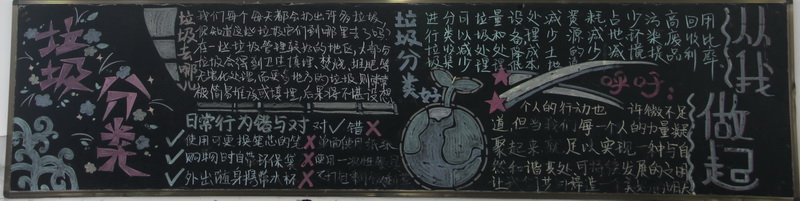 垃圾
分类
垃圾去哪儿
我们每个每天都会扔出许多垃圾,
你知道这些垃圾它们到哪里去了吗?
在一些垃圾管理较好的地区,大部分
垃圾会得到卫生填埋、焚烧、堆肥等
无害化处理,而更多地方的垃圾则常常
被简易堆放或填埋,后果将不堪设想
日常行为错与对 对✓ 错✗
✓使用可更换笔芯的笔
✓购物时自带环保袋
✓外出随身携带水杯
垃圾分类好
进行垃圾
分类收集
可以减少
垃圾处理
量和处理
设备降低
处理成本
减少土地
资源的
耗减少
占地减
少环境
污染提
高废品
回收利
用比率
呼吁:
个人的行动也许微不足
道,但当我们每一个人的力量凝
聚起来就足以实现一种与自
然和谐共处,可持续发展的
从我
做起